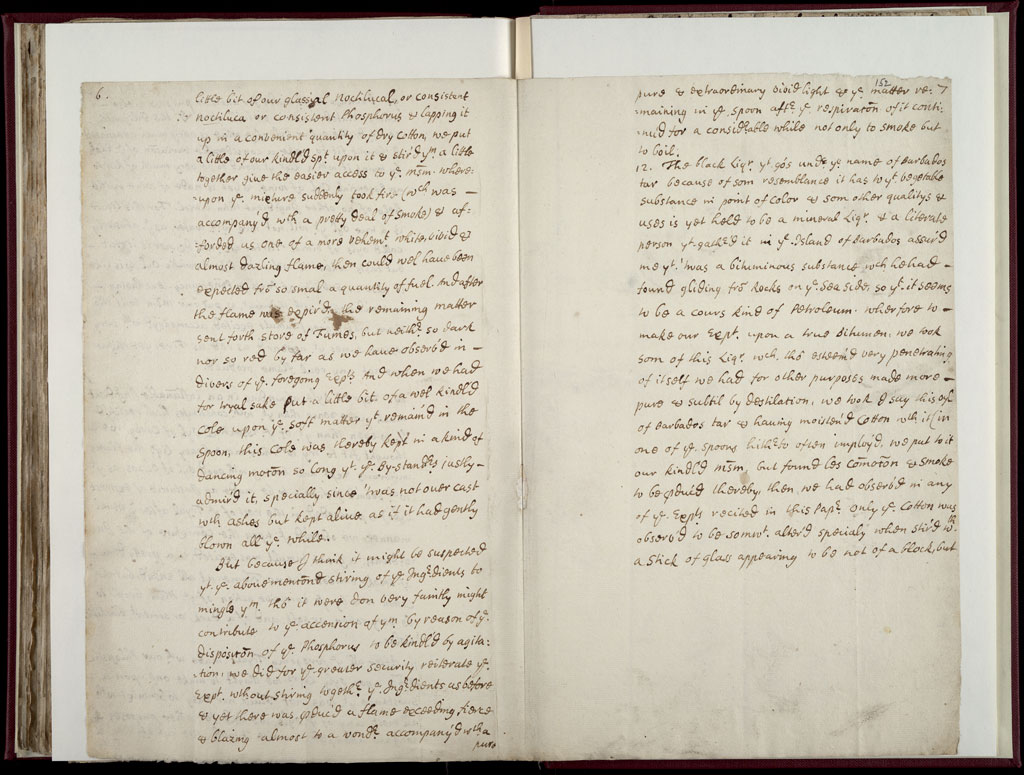 6.
little bit of our glassial Noctilucal, or consistent
Noctiluca or consistent Phosphorus & lapping it
up in a convenient quantity of Dry Cotton, we put
a little of our kindl'd spt. upon it & stir'd ym a little
together give the easier access to ye. msm. where:
upon ye. mixture suddenly took fire (wch was —
accompany'd wth a pretty deal of smoke) & af-
forded us one of a more vehemt. white, vivid &
almost dazling flame, then could wel have been
expected frō so smal a quantity of fuel. And after
the flame was expir'd, the remaining matter
sent forth store of Fumes, but neithr. so dark
nor so red by far as we have observ'd in —
divers of ye. foregoing Expts. And when we had
for tryal sake put a little bit of a wel kindl'd
Cole upon ye. soft matter yt. remain'd in the
spoon, this Cole was thereby kept in a kind of
dancing motōn so long yt. ye. by-standrs justly —
admir'd it, specially since 'twas not over cast
wth ashes but kept alive as if it had gently
blown all ye. while.
But because I think it might be suspected
yt. ye. abovementōnd stiring of ye. Ingredients to
mingle ym. thō it were don very faintly might
contribute to ye accension of ym by reason of ye.
dispositōn of ye. Phosphorus to be kindl'd by agita-
tion, we did for ye. greater security reiterate ye.
Expt. without stiring togethr. ye. Ingredients as before
& yet there was pduc'd a flame exceeding fierce
& blazing almost to a wondr. accompany'd with a
pure
152
7
pure & extraordinary vivid light & ye. matter re-
maining in ye. spoon aftr. ye. respiratōn of it conti-
nu'd for a considrable while not only to smoke but
to boil.
12. The black Liqr. yt gos undr. ye name of Barbados
tar because of som resemblance it has to yt. vegetable
substance in point of color & som other qualitys &
uses is yet held to be a mineral Liqr. & a literate
person yt. gathr'd it in ye. Island of Barbados assur'd
me yt. 'twas a bituminous substance wch he had —
found gliding frō Rocks on ye. Sea side, so yt. it seems
to be a cours kind of Petroleum. wherfore to —
make our Expt. upon a true Bitumen. we took
som of this Liqr. wch. thō esteem'd very penetrating
of itself we had for other purposes made more —
pure & subtil by destilation, we took I say this oyl
of Barbados tar & having moisten'd Cotton wth it (in
one of ye. spoons hithrto often imploy'd, we put to it
our kindl'd msm, but found les cōmotōn & smoke
to be pduc'd thereby, then we had observ'd in any
of ye. Expts recited in this Papr. only ye. Cotton was
observ'd to be somwt. alter'd specialy when stir'd wth
a stick of glass appearing to be not of a black, but